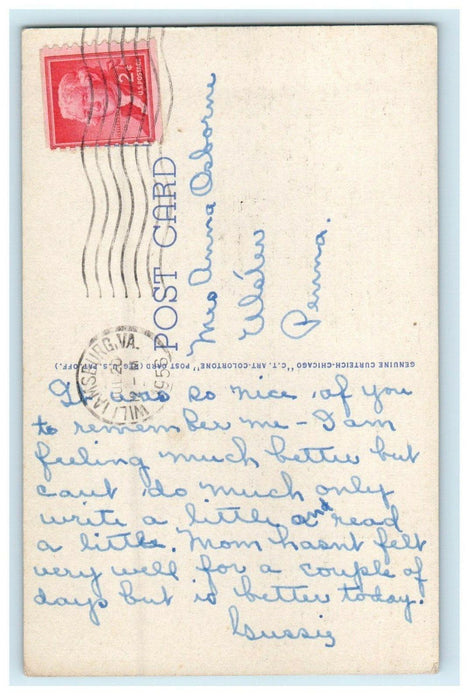 2¢
U.S. POSTAGE
WILLIAMSBURG, VA.
1956
POST CARD
Mrs Anna Osborne
Penna.
GENUINE CURTEICH-CHICAGO "C. T. ART-COLORTONE" POST CARD (REG. U. S. PAT. OFF.)
It was so nice of you
to remember me - I am
feeling much better but
cant do much only
write a little and read
a little. Mom hasnt felt
very well for a couple of
days but is better today.
Gussie